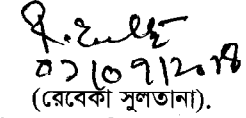 ০২/০৭/২০১৮
(রেবেকা সুলতানা).